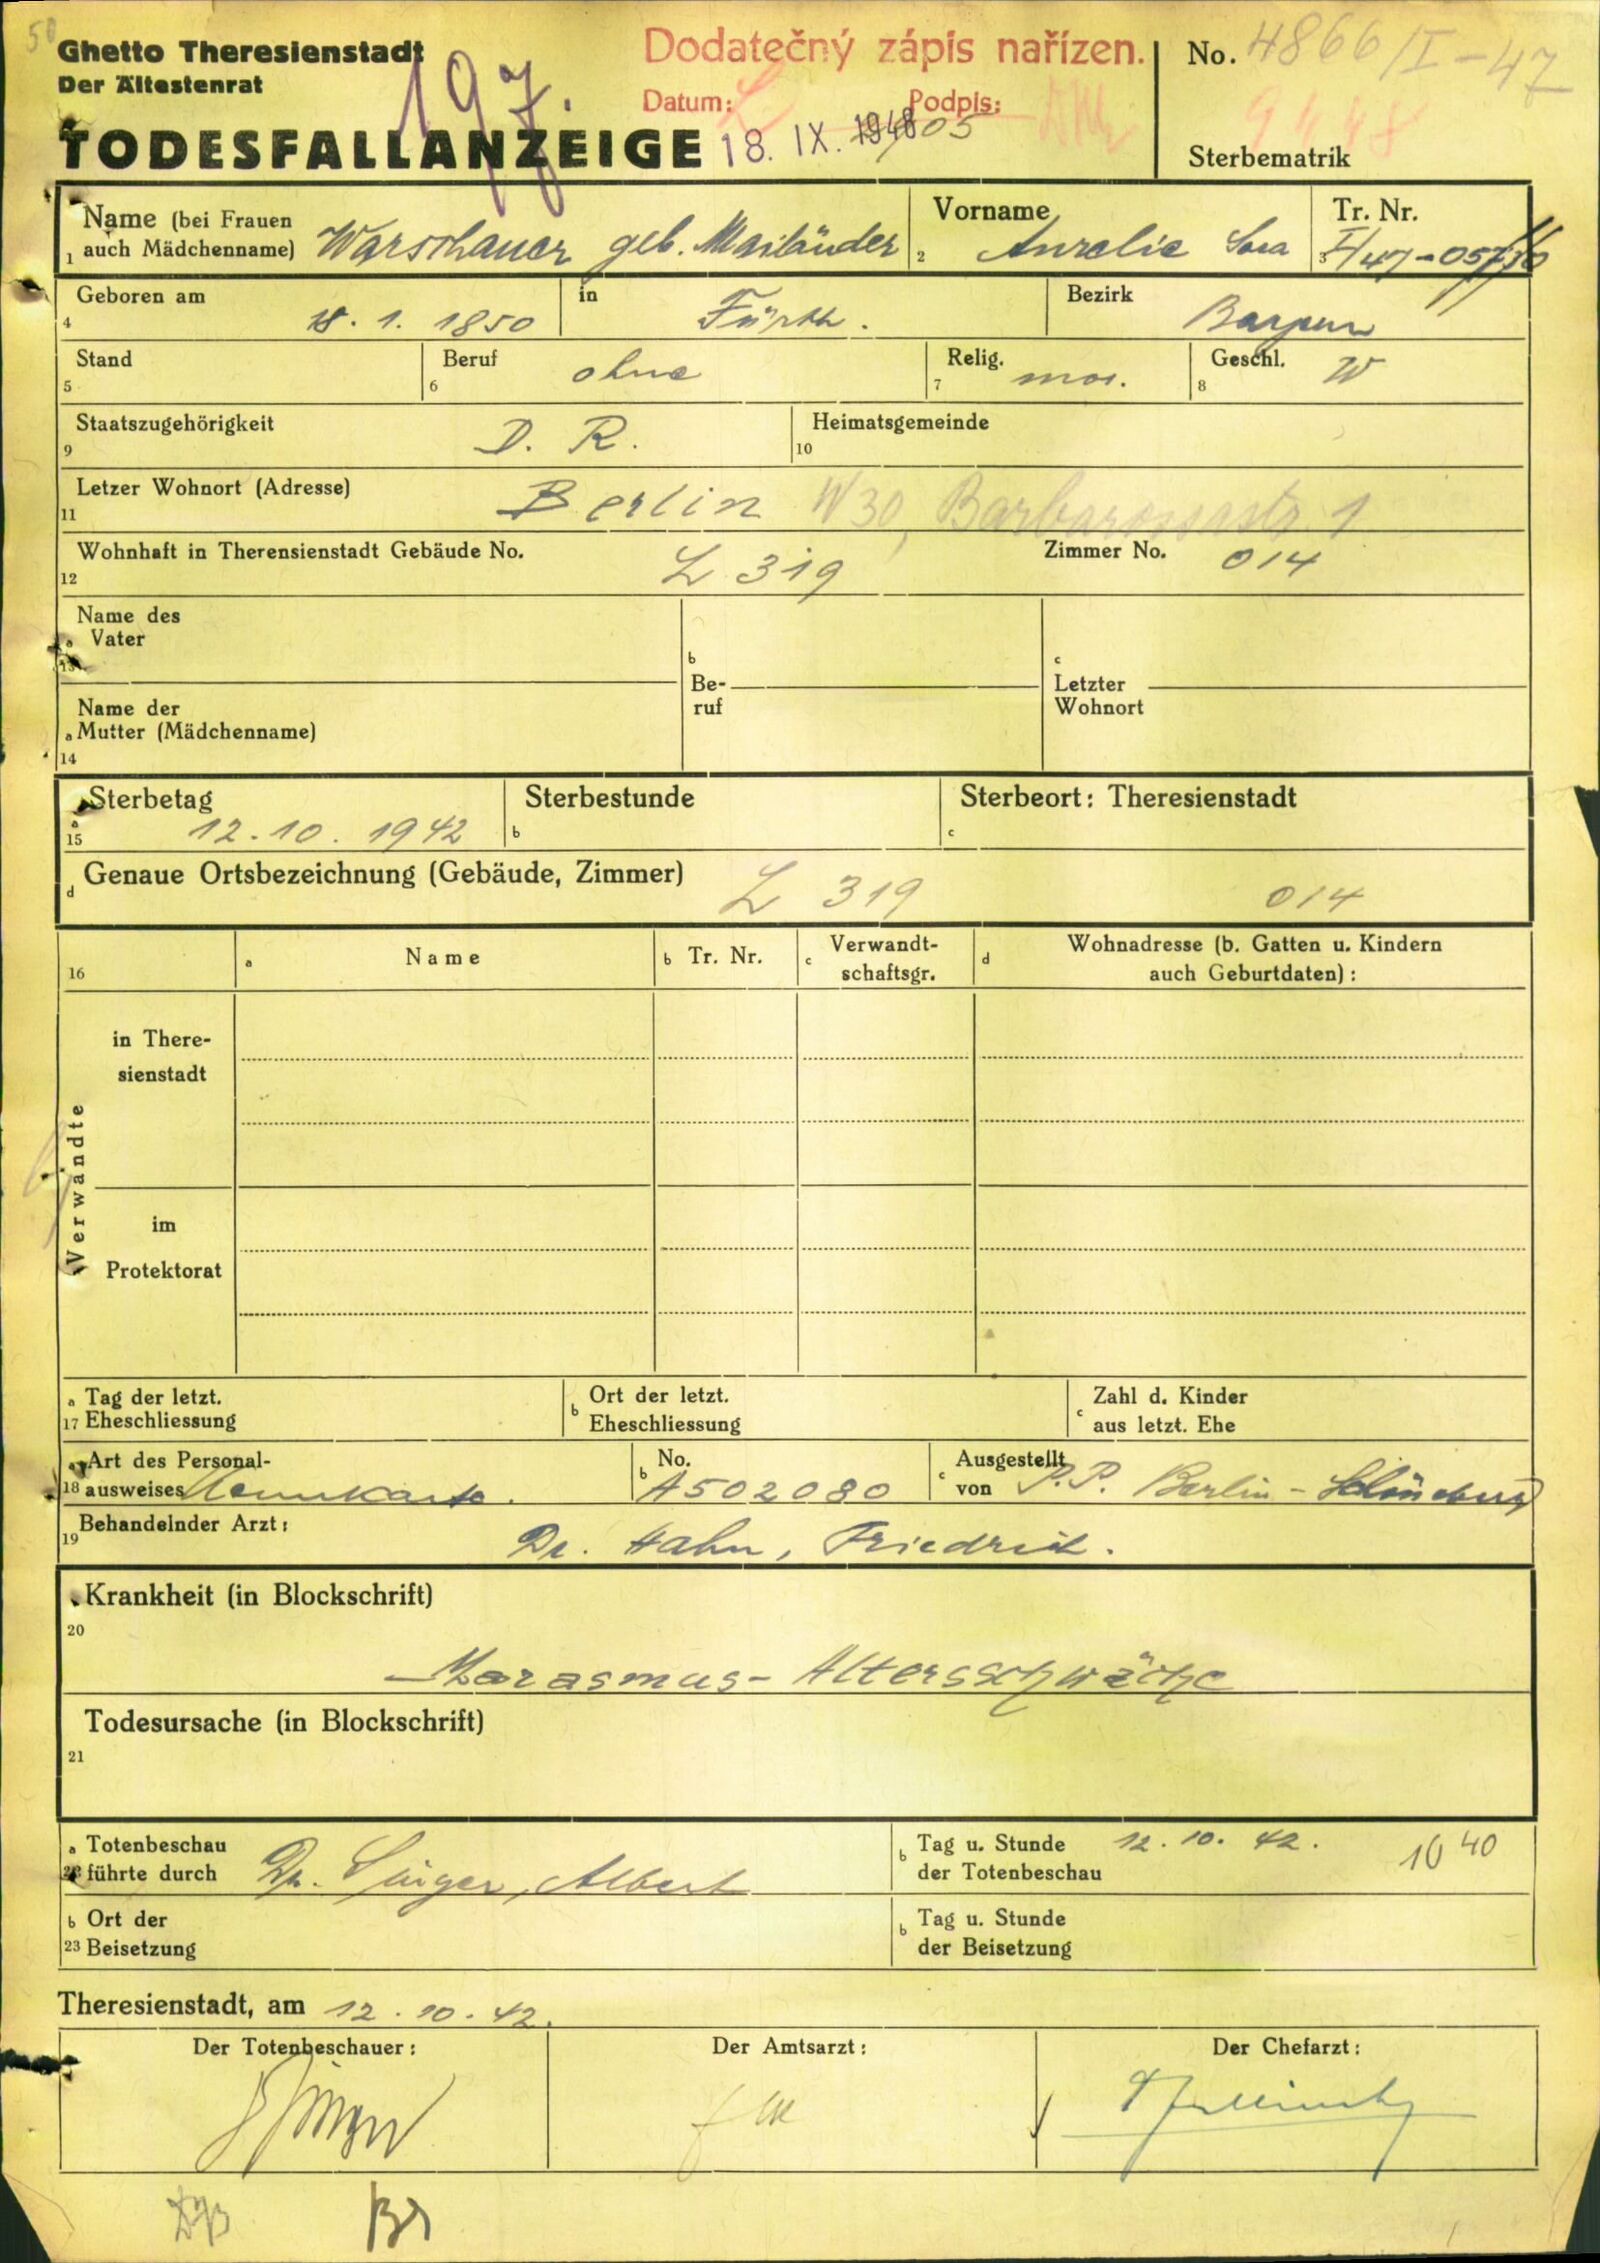 Ghetto Theresienstadt
Der Ältestenrat
TODESFALLANZEIGE
197.
Dodatečný zápis nařízen.
Datum: Podpis:
18. IX. 1948
No. 4866/I-47
9448
Sterbematrik
1 Name (bei Frauen auch Mädchenname) Warschauer geb. Mailänder
2 Vorname Aurelie Sara
3 Tr. Nr. I/47-05730
4 Geboren am 18. 1. 1850 in Fürth. Bezirk Bayern
5 Stand
6 Beruf ohne
7 Relig. mos.
8 Geschl. W
9 Staatszugehörigkeit D. R.
10 Heimatsgemeinde
11 Letzer Wohnort (Adresse) Berlin W30, Barbarossastr. 1
12 Wohnhaft in Therensienstadt Gebäude No. L 319 Zimmer No. 014
13 a Name des Vater
b Beruf
c Letzter Wohnort
14 a Name der Mutter (Mädchenname)
15 a Sterbetag 12. 10. 1942
b Sterbestunde
c Sterbeort: Theresienstadt
d Genaue Ortsbezeichnung (Gebäude, Zimmer) L 319 014
16 a Name b Tr. Nr. c Verwandtschaftsgr. d Wohnadresse (b. Gatten u. Kindern auch Geburtdaten):
Verwandte
in Theresienstadt
im Protektorat
17 a Tag der letzt. Eheschliessung
b Ort der letzt. Eheschliessung
c Zahl d. Kinder aus letzt. Ehe
18 a Art des Personalausweises Kennkarte.
b No. A502080
c Ausgestellt von P.P. Berlin - Schöneberg
19 Behandelnder Arzt: Dr. Hahn, Friedrich.
Krankheit (in Blockschrift)
20
Marasmus - Altersschwäche
Todesursache (in Blockschrift)
21
22 a Totenbeschau führte durch Dr. Singer, Albert
b Tag u. Stunde der Totenbeschau 12. 10. 42. 10 40
23 b Ort der Beisetzung
b Tag u. Stunde der Beisetzung
Theresienstadt, am 12. 10. 42.
Der Totenbeschauer: Der Amtsarzt: Der Chefarzt: